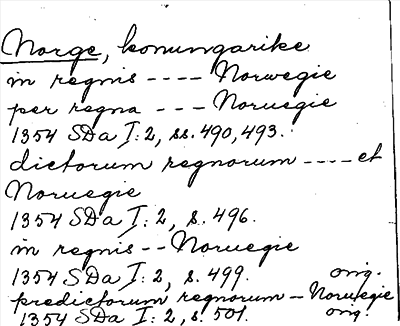 Norge, konungarike
in regnis ---- Norwegie
per regna --- Noruegie
1354 SDa I: 2, ss. 490, 493.
dictorum regnorum ---- et
Noruegie
1354 SDa I: 2, s. 496.
in regnis -- Noruegie
1354 SDa I: 2, s. 499. orig.
predictorum regnorum - Norwegie
1354 SDa I: 2, s. 501. orig.